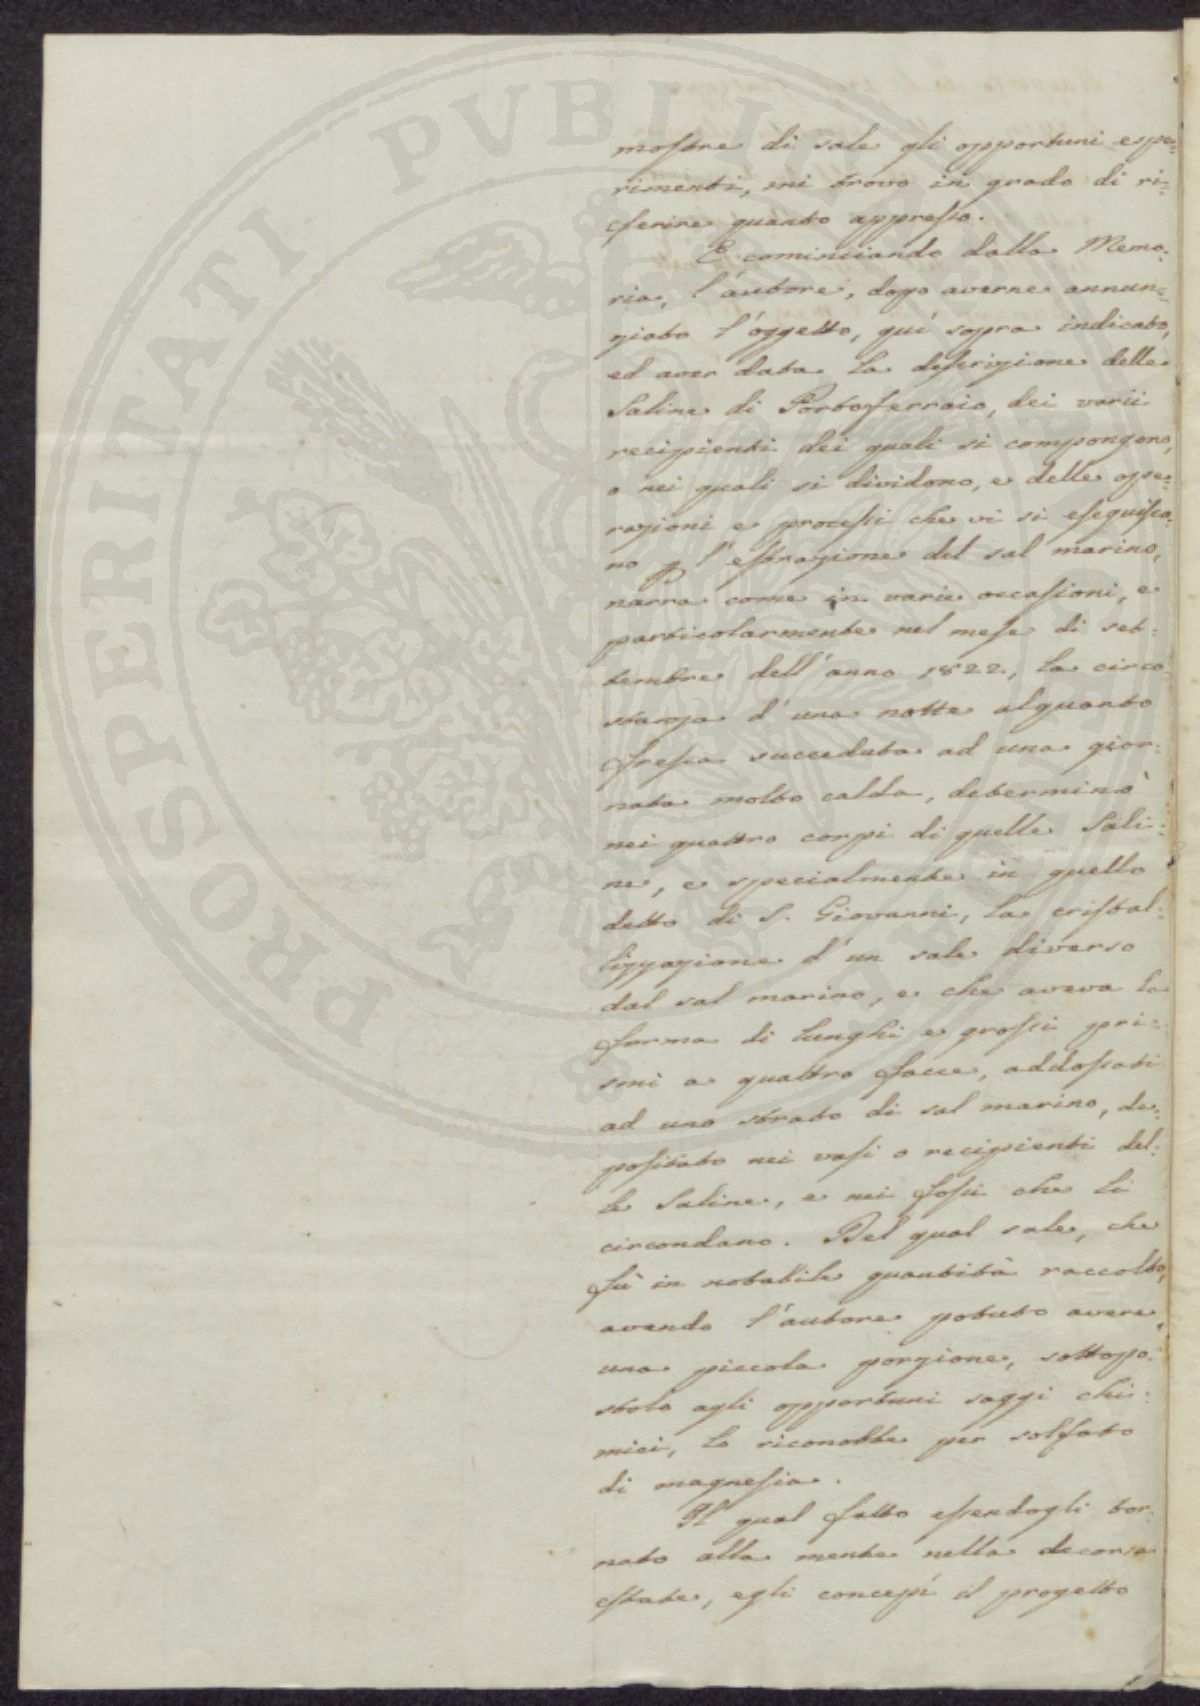 PROSPERITATI PVBLICAE
mostre di sale gli opportuni espe=
rimenti, mi trovo in grado di ri=
ferire quanto appresso.
E cominciando dalla Memo=
ria, l'autore, dopo averne annun=
ziato l'oggetto, quì sopra indicato,
ed aver data la descrizione delle
Saline di Portoferraio, dei varii
recipienti dei quali si compongono,
o nei quali si dividono, e delle ope=
razioni e processi che vi si eseguisco=
no p l'estrazione del sal marino,
narra come in varie occasioni, e
particolarmente nel mese di set=
tembre dell'anno 1822., la circo=
stanza d'una notte alquanto
fresca succeduta ad una gior=
nata molto calda, determinò
nei quattro corpi di quelle Sali=
ne, e specialmente in quello
detto di S. Giovanni, la cristal=
lizzazione d'un sale diverso
dal sal marino, e che aveva la
forma di lunghi e grossi pri=
smi a quattro facce, addossati
ad uno strato di sal marino, de=
positato nei vasi o recipienti del=
le Saline, e nei fossi che li
circondano. Del qual sale, che
fù in notabile quantità raccolto,
avendo l'autore potuto avere
una piccola porzione, sottopo=
stola agli opportuni saggi chi=
mici, lo riconobbe per solfato
di magnesia.
Il qual fatto essendogli tor=
nato alla mente nella decorsa
estate, egli concepì il progetto